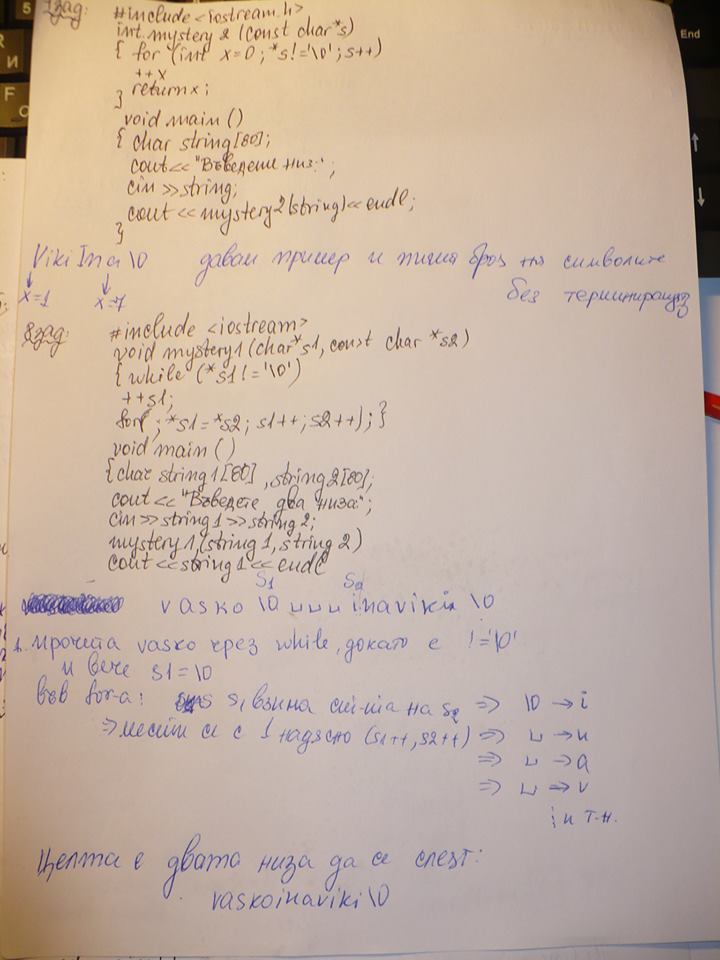 1зад:
#include <iostream.h>
int mystery 2 (const char *s)
{ for (int x=0; *s!='\0'; s++)
++x
return x;
}
void main ()
{ char string [80];
cout<< "Въведете низ:";
cin >> string;
cout << mystery2(string)<< endl;
}
Viki Ina \0 давам пример и пиша броя на символите
x=1 x=7 без терминиращ
2зад:
#include <iostream>
void mystery1 (char*s1, const char *s2)
{ while (*s1!='\0')
++s1;
for( ; *s1=*s2; s1++; s2++); }
void main ()
{char string 1 [80], string2[80];
cout << "Въведете два низа:";
cin>> string1 >> string 2;
mystery1,(string 1, string 2)
cout <<string 1<< endl
S1 S2
vasko \0 ␣␣␣ inaviki \0
1. прочита vasko чрез while, докато е !='\0'
и вече s1=\0
във for-a: s1 взима ст-та на s2 => \0 → i
=> мести се с 1 надясно (s1++, s2++) => ␣ → n
=> ␣ → a
=> ␣ → v
и т.н.
Целта е двата низа да се слеят:
vaskoinaviki \0
End